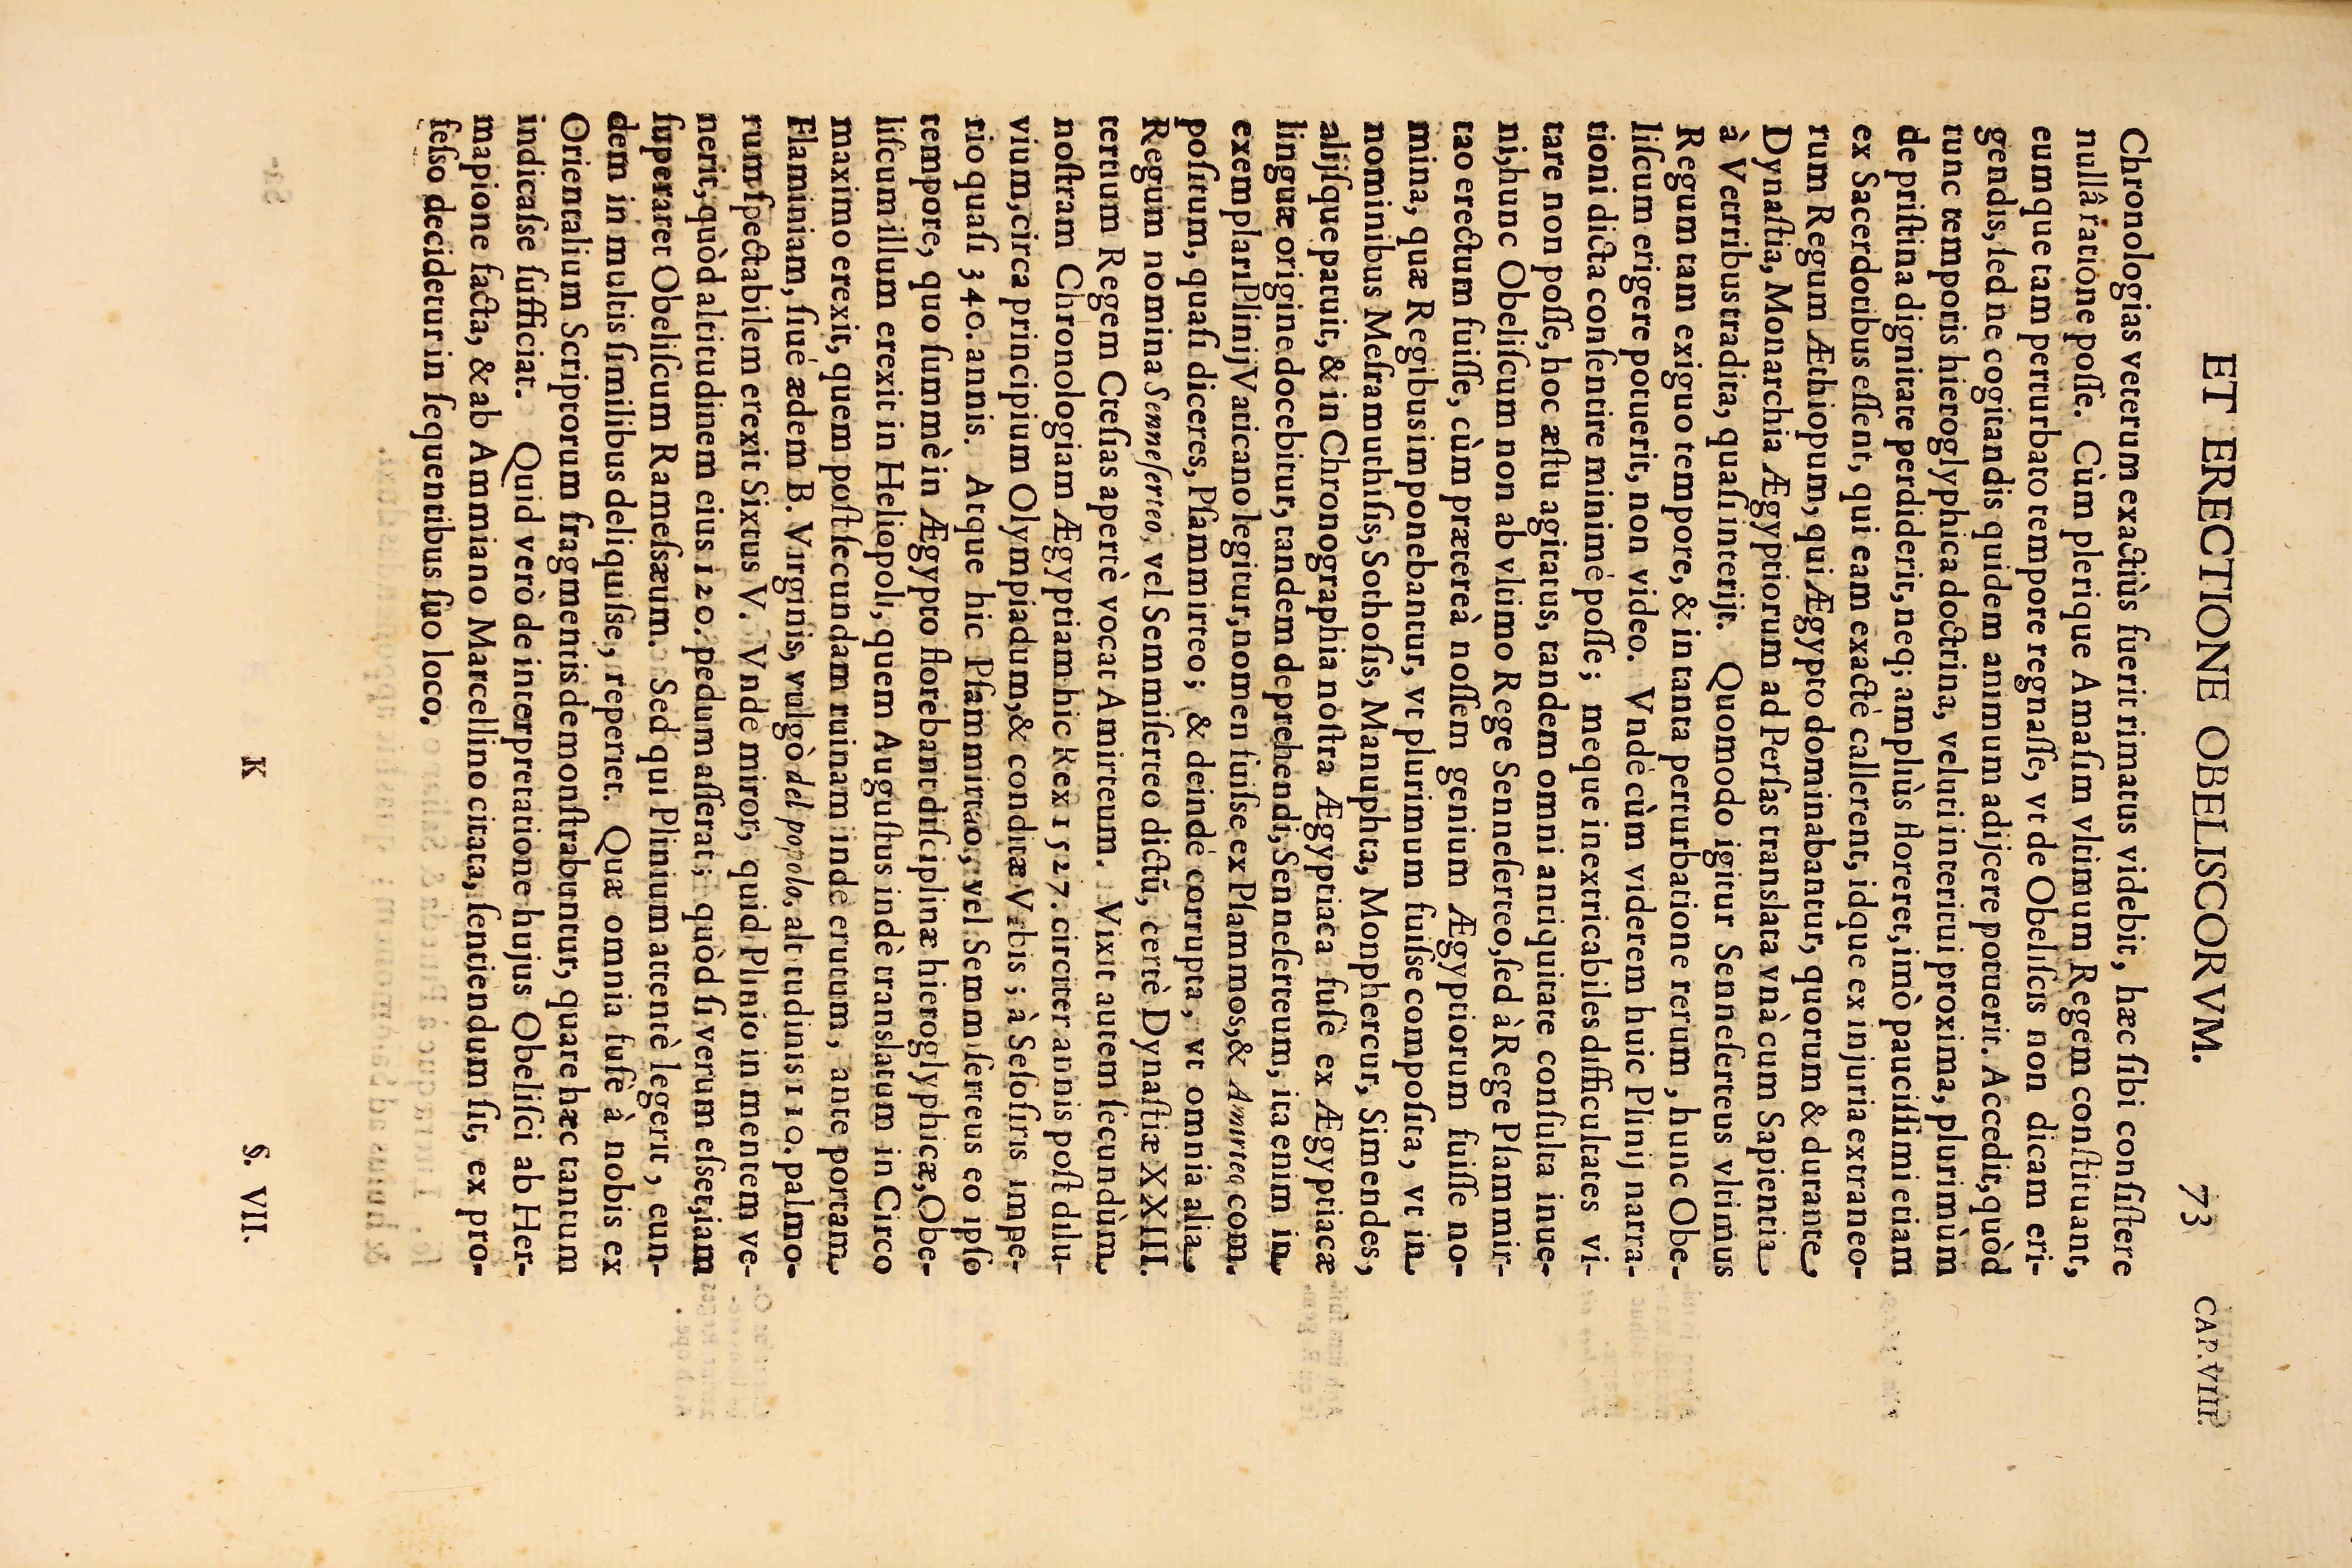 ET ERECTIONE OBELISCORVM. 73 CAP. VIII.
Chronologias veterum exactiùs fuerit rimatus videbit, hæc ſibi conſiſtere
nullâ ratione poſſe. Cùm plerique Amaſim vltimum Regem conſtituant,
eumque tam perturbato tempore regnaſſe, vt de Obeliſcis non dicam eri-
gendis, ſed ne cogitandis quidem animum adijcere potuerit. Accedit, quòd
tunc temporis hieroglyphica doctrina, veluti interitui proxima, plurimùm
de priſtina dignitate perdiderit, neq; ampliùs floreret, imò pauciſſimi etiam
ex Sacerdotibus eſſent, qui eam exactè callerent, idque ex injuria extraneo-
rum Regum Æthiopum, qui Ægypto dominabantur, quorum & durante
Dynaſtia, Monarchia Ægyptiorum ad Perſas translata vnà cum Sapientia
à Vetribus tradita, quaſi interijt. Quomodo igitur Senneſerteus vltimus
Regum tam exiguo tempore, & in tanta perturbatione rerum, hunc Obe-
liſcum erigere potuerit, non video. Vndè cùm viderem huic Plinij narra-
tioni dicta conſentire minimè poſſe; meque inextricabiles difficultates vi-
tare non poſſe, hoc æſtu agitatus, tandem omni antiquitate conſulta inue-
ni, hunc Obeliſcum non ab vltimo Rege Senneſerteo, ſed à Rege Pſammir-
tao erectum fuiſſe, cùm prætereà noſſem genium Ægyptiorum fuiſſe no-
mina, quæ Regibus imponebantur, vt plurimum fuiſse compoſita, vt in
nominibus Meſramuthiſis, Sothoſis, Manuphta, Monphercur, Simendes,
alijſque patuit, & in Chronographia noſtra Ægyptiaca fuſè ex Ægyptiacæ
linguæ origine docebitur, tandem deprehendi, Senneſerteum, ita enim in
exemplari Plinij Vaticano legitur, nomen fuiſse ex Pſammos, & Amirteo com.
poſitum, quaſi diceres, Pſammirteo; & deindè corrupta, vt omnia alia
Regum nomina Senneſerteo, vel Semmiſerteo dictũ, certè Dynaſtiæ XXIII.
tertium Regem Cteſias apertè vocat Amirteum. Vixit autem ſecundùm
noſtram Chronologiam Ægyptiam hic Rex 1527. circiter annis poſt dilu-
vium, circa principium Olympiadum, & conditæ Vrbis; à Seſoſtris impe-
rio quaſi 340. annis. Atque hic Pſammirtao, vel Semmiſerteus eo ipſo
tempore, quo ſummè in Ægypto florebant diſciplinæ hieroglyphicæ, Obe-
liſcum illum erexit in Heliopoli, quem Auguſtus indè translatum in Circo
maximo erexit, quem poſt ſecundam ruinam indè erutum, ante portam
Flaminiam, ſiuè ædem B. Virginis, vulgò del popolo, altitudinis 110. palmo-
rum ſpectabilem erexit Sixtus V. Vndè miror, quid Plinio in mentem ve-
nerit, quòd altitudinem eius 120. pedum aſſerat; quòd ſi verum eſset, iam
ſuperaret Obeliſcum Rameſsæum. Sed qui Plinium attentè legerit, eun-
dem in multis ſimilibus deliquiſse, reperiet. Quæ omnia fuſè à nobis ex
Orientalium Scriptorum fragmentis demonſtrabuntur, quare hæc tantum
indicaſse ſufficiat. Quid verò de interpretatione hujus Obeliſci ab Her-
mapione facta, & ab Ammiano Marcellino citata, ſentiendum ſit, ex pro-
feſso decidetur in ſequentibus ſuo loco.
K §. VII.